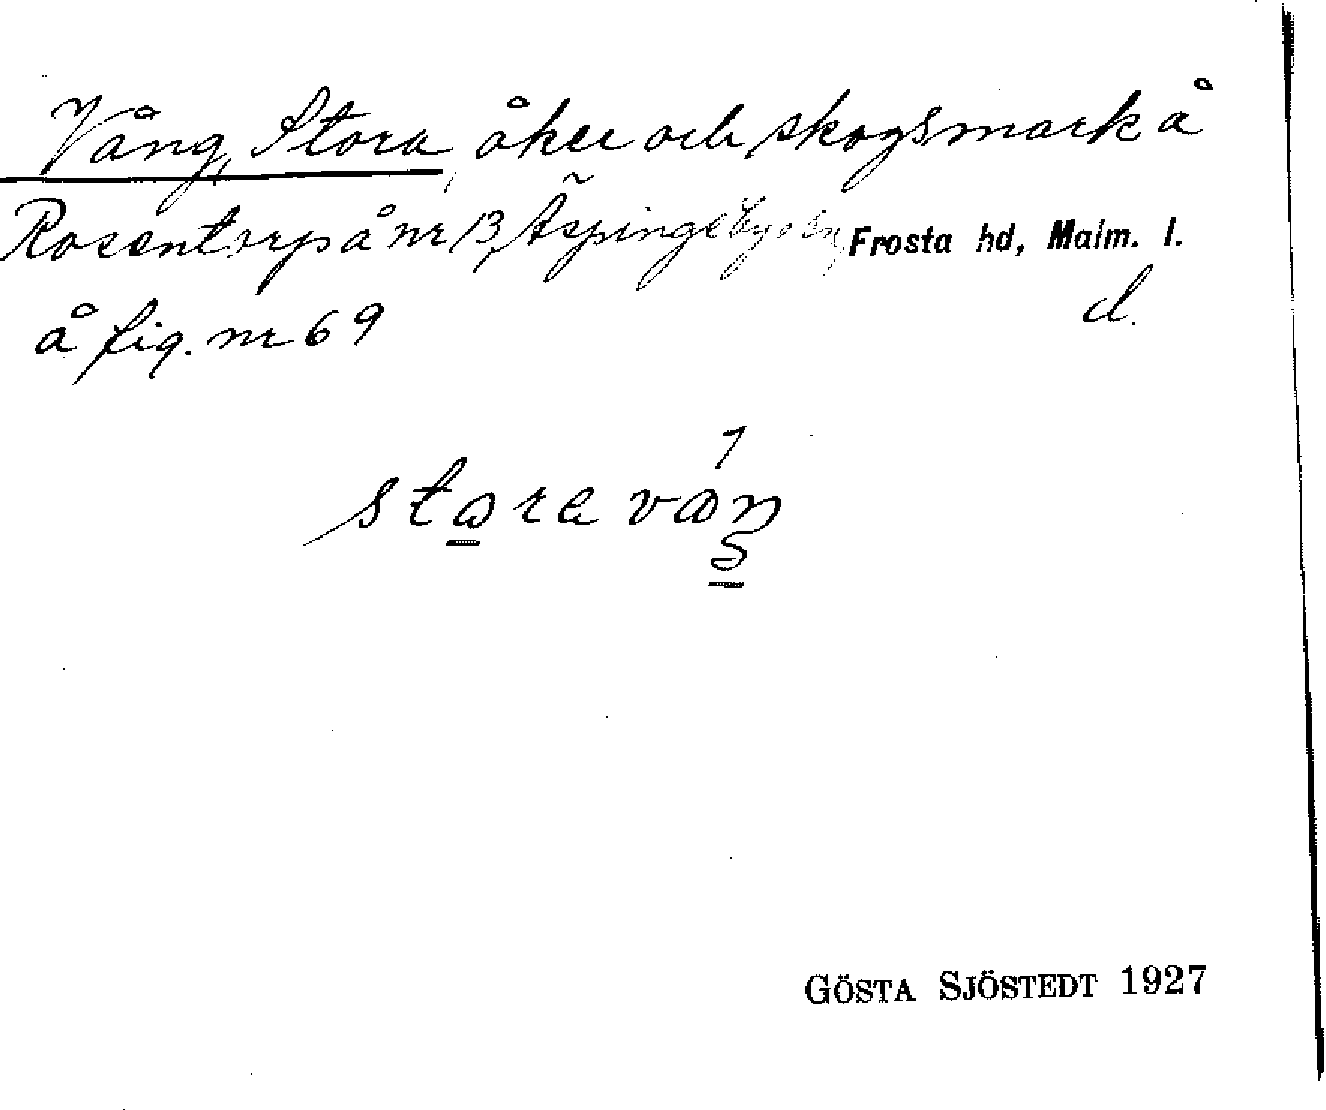 Vång, Stora, åker och skogsmark å
Rosentorp å nr 13, Äspinge by Frosta hd, Malm. l.
å fig. nr 69 d.
stora våŋ
GÖSTA SJÖSTEDT 1927